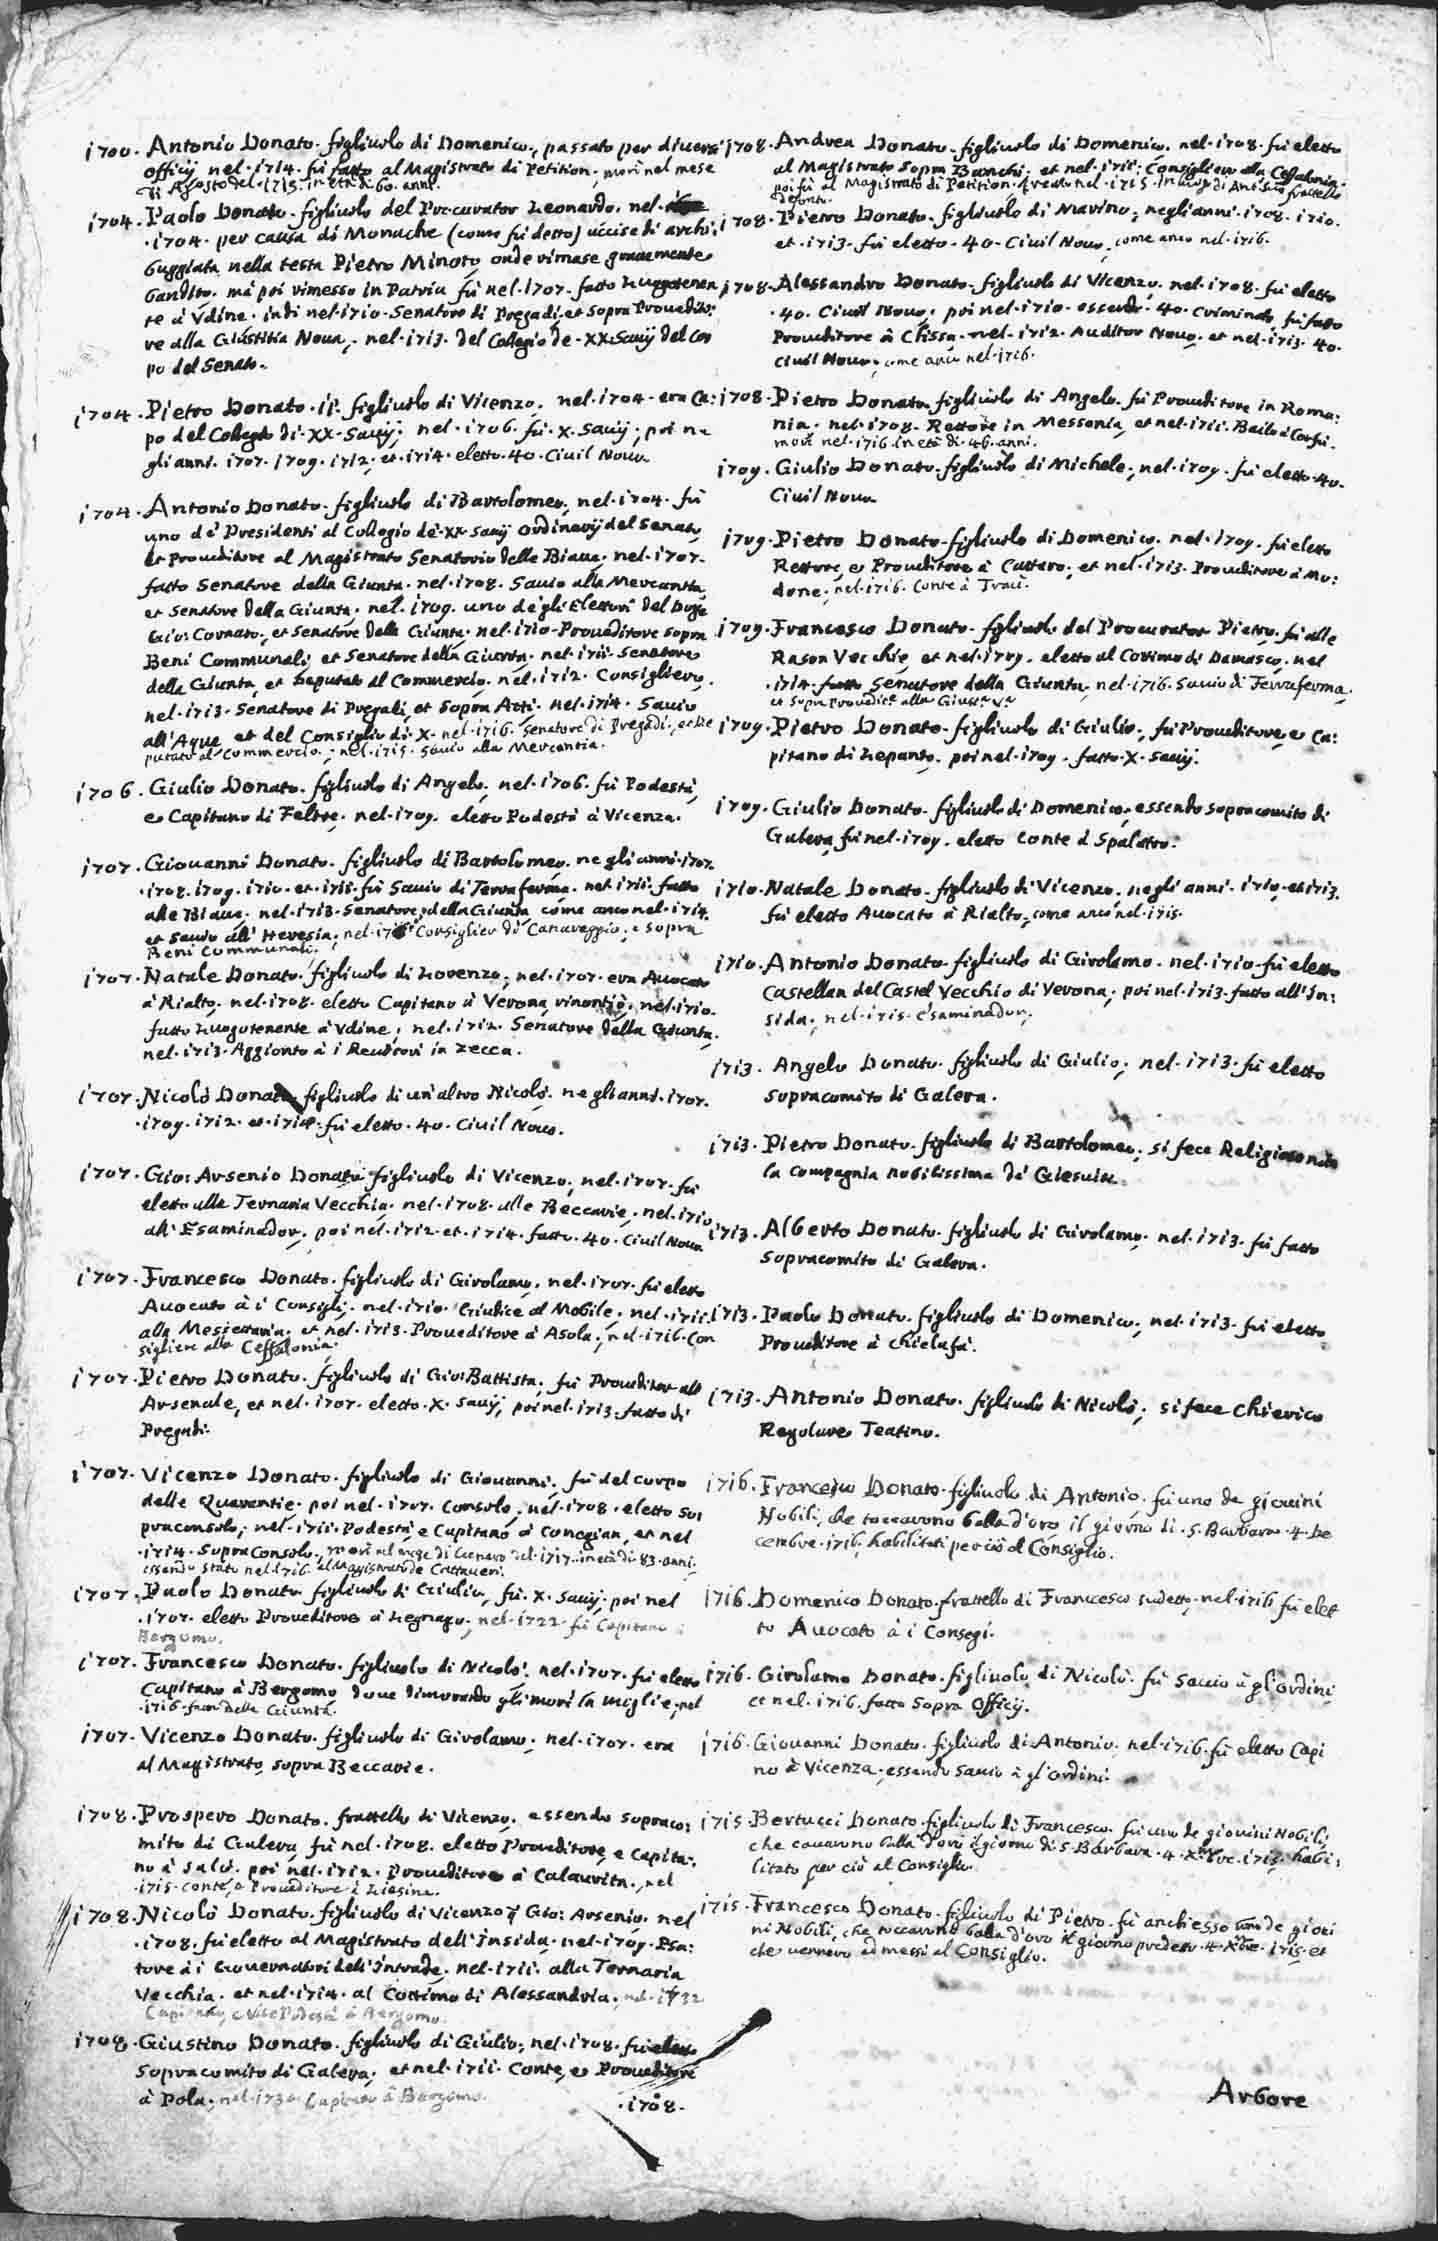 1700. Antonio Donato. figliuolo di Domenico, passato per diversi
officij nel. 1714. fù fatto al Magistrato di Petition, morì nel mese
di Agosto del. 1715. in età di. 60. anni.
1704. Paolo Donato. figliuolo del Procurator Leonardo. nel.
.1704. per causa di Monache (come fù detto) uccise di archi:
buggiata nella testa Pietro Minoto, onde rimase gravemente
bandito. mà poi rimesso in Patria fù nel. 1707. fatto Luogotenen
te à Vdine. indi nel. 1710. Senatore di Pregadi, et sopra Proveditor
re alla Giustitia Nova, nel. 1713. del Collegio de. XX. Savij del Cor
po del Senato.
1704. Pietro Donato. ii. figliuolo di Vicenzo, nel. 1704. era Ca:
po del Collegio di. XX. Savij; nel. 1706. fù. X. Savij; poi ne
gli anni. 1707. 1709. 1712, et. 1714. eletto. 40. Civil Novo.
1704. Antonio Donato. figliuolo di Bartolomeo, nel. 1704. fù
uno de' Presidenti al Collegio de. XX. Savij ordinarij del Senato,
et Proveditore al Magistrato Senatorio delle Biave, nel. 1707.
fatto Senatore della Giunta. nel. 1708. Savio alla Mercantia,
et Senatore della Giunta. nel. 1709. uno de gli Elettori del Doge
Gio: Cornaro, et Senatore della Giunta. nel. 1710. Proveditore sopra
Beni Communali, et Senatore della Giunta. nel. 1711. Senatore
della Giunta, et Deputato al Commercio. nel. 1712. Consigliero.
nel. 1713. Senatore di Pregadi, et sopra Atti. nel. 1714. Savio
all'Aque, et del Consiglio di. X. nel. 1716. Senatore di Pregadi, e De
putato al Commercio; nel. 1715. Savio alla Mercantia.
1706. Giulio Donato. figliuolo di Angelo, nel. 1706. fù Podestà,
e Capitano di Feltre. nel. 1709. eletto Podestà à Vicenza.
1707. Giovanni Donato. figliuolo di Bartolomeo. ne gli anni. 1707.
.1708. 1709. 1710. et. 1711. fù Savio di Terra ferma. nel. 1711. fatto
alle Biave. nel. 1713. Senatore della Giunta, come anco nel. 1714.
et Savio all'Heresia; nel. Consiglier di Canareggio, e sopra
Beni Communali.
1707. Natale Donato. figliuolo di Lorenzo, nel. 1707. era Avocato
à Rialto. nel. 1708. eletto Capitano à Verona, rinontiò, nel. 1710.
fatto Luogotenente à Vdine; nel. 1712. Senatore della Giunta.
nel. 1713. Aggionto à i Reuditori in Zecca.
1707. Nicolò Donato figliuolo di un'altro Nicolò. ne gli anni. 1707.
.1709. 1712. et. 1714. fù eletto. 40. Civil Novo.
1707. Gio: Arsenio Donato figliuolo di Vicenzo, nel. 1707. fù
eletto alla Ternaria Vecchia. nel. 1708. alle Beccarie, nel. 1710.
all'Esaminador, poi nel. 1712. et. 1714. fatto. 40. Civil Novo.
1707. Francesco Donato. figliuolo di Girolamo. nel. 1707. fù eletto
Avocato à i Consigli. nel. 1710. Giudice al Mobile, nel. 1711.
alla Messettaria. et nel. 1713. Proveditore à Asola, nel. 1716. Con
sigliere alla Ceffalonia.
1707. Pietro Donato. figliuolo di Gio: Battista. fù Proveditor all
Arsenale, et nel. 1707. eletto. X. Savij, poi nel. 1713. fatto di
Pregadi.
1707. Vicenzo Donato. figliuolo di Giovanni, fù del corpo
delle Quarantie. poi nel. 1707. Consolo, nel. 1708. eletto So:
praconsolo; nel. 1711. Podestà, e Capitano à Conegian, et nel
.1714. SopraConsolo, morì nel mese di Genaro del. 1717. in età di. 83. anni.
essendo stato nel. 1716. al Magistrato de Cattaveri.
1707. Paolo Donato. figliuolo di Giulio, fù. X. Savij. poi nel
.1707. eletto Proveditore à Legnago, nel. 1722. fù Capitano à
Bergomo.
1707. Francesco Donato. figliuolo di Nicolò. nel. 1707. fù eletto
Capitano à Bergomo, dove dimorando gli morì la moglie, nel
.1716. fù della Giunta.
1707. Vicenzo Donato. figliuolo di Girolamo; nel. 1707. era
al Magistrato sopra Beccarie.
1708. Prospero Donato. frattello di Vicenzo. essendo sopraco:
mito di Galera fù nel. 1708. eletto Proveditore, e Capita:
no à Salò. poi nel. 1712. Proveditore à Calavrita, nel
.1715. Conte, e Proveditore à Liesina.
1708. Nicolò Donato. figliuolo di Vicenzo q Gio: Arsenio. nel
.1708. fù eletto al Magistrato dell'Insida. nel. 1709. Esa:
tore à i Governatori dell'Intrade. nel. 1711. alla Ternaria
Vecchia. et nel. 1714. al Cottimo di Alessandria. nel. 1732
Capitano, e Vice Podestà à Bergomo.
1708. Giustino Donato. figliuolo di Giulio, nel. 1708. fù eletto
Sopracomito di Galera, et nel. 1711. Conte, e Proveditore
à Pola; nel. 1730. Capitano à Bergomo.
.1708.
1708. Andrea Donato. figliuolo di Domenico. nel. 1708. fù eletto
al Magistrato sopra Banchi. et nel. 1711. Consigliero alla Ceffalonia.
poi fù al Magistrato di Petition. creato nel. 1715. in luogo di Ant.º suo frattello
defonto.
1708. Pietro Donato. figliuolo di Marino; negli anni. 1708. 1710.
et. 1713. fù eletto. 40. Civil Novo, come anco nel. 1716.
1708. Alessandro Donato. figliuolo di Vicenzo. nel. 1708. fù eletto
.40. Civil Novo; poi nel. 1710. essendo. 40. Criminale, fù fatto
Proveditore à Clissa. nel. 1712. Auditor Novo. et nel. 1713. 40.
Civil Novo; come anco nel. 1716.
1708. Pietro Donato. figliuolo di Angelo. fù Proveditore in Roma:
nia. nel. 1708. Rettore in Messonia, et nel. 1711. Bailo à Corfù.
morì nel. 1716. in età di. 46. anni.
1709. Giulio Donato. figliuolo di Michele; nel. 1709. fù eletto. 40.
Civil Novo.
1709. Pietro Donato. figliuolo di Domenico. nel. 1709. fù eletto
Rettore, e Proveditore à Cattaro, et nel. 1713. Proveditore à Mo:
done; nel. 1716. Conte à Traù.
1709. Francesco Donato. figliuolo del Procurator Pietro. fù alle
Rason Vecchie, et nel. 1709. eletto al Cottimo di Damasco. nel
.1714. fatto Senatore della Giunta, nel. 1716. Savio di Terraferma.
et Sopra Provedit.e alla Giust.a V.a
1709. Pietro Donato. figliuolo di Giulio, fù Proveditore, e Ca:
pitano di Lepanto. poi nel. 1709. fatto. X. Savij.
1709. Giulio Donato. figliuolo di Domenico. essendo sopracomito di
Galera, fù nel. 1709. eletto Conte à Spalatro.
1710. Natale Donato. figliuolo di Vicenzo. negli anni. 1710. et. 1713.
fù eletto Avocato à Rialto, come anco nel. 1715.
1710. Antonio Donato. figliuolo di Girolamo. nel. 1710. fù eletto
Castellan del Castel Vecchio di Verona; poi nel. 1713. fatto all'In:
sida; nel. 1715. Esaminador.
1713. Angelo Donato. figliuolo di Giulio; nel. 1713. fù eletto
Sopracomito di Galera.
1713. Pietro Donato. figliuolo di Bartolomeo; si fece Religioso nella
la Compagnia nobilissima de' Giesuiti.
1713. Alberto Donato. figliuolo di Girolamo; nel. 1713. fù fatto
Sopracomito di Galera.
1713. Paolo Donato. figliuolo di Domenico, nel. 1713. fù eletto
Proveditore à Chielafà.
1713. Antonio Donato. figliuolo di Nicolò; si fece Chierico
Regolare Teatino.
1716. Francesco Donato. figliuolo di Antonio. fù uno de giovini
Nobili, che toccarono balla d'oro il giorno di. S. Barbara. 4. De
cembre. 1716, habilitati per ciò al Consiglio.
1716. Domenico Donato. frattello di Francesco sudetto. nel. 1716 fù elet
to Avocato à i Consegi.
1716. Girolamo Donato. figliuolo di Nicolò. fù Savio à gl'ordini,
et nel. 1716. fatto Sopra Officij.
1716. Giovanni Donato. figliuolo di Antonio. nel. 1716. fù eletto Capi
no à Vicenza. essendo Savio à gl'ordini.
1715. Bertucci Donato. figliuolo di Francesco. fù uno de giovini Nobili,
che cavarono balla d'oro il giorno di S. Barbara. 4. Xbre. 1715. habi:
litato per ciò al Consiglio.
1715. Francesco Donato. figliuolo di Pietro. fù anch'esso uno de giovi
ni Nobili, che toccarono balla d'oro il giorno predetto. 4. Xbre. 1715. et
che vennero admessi al Consiglio.
Arbore